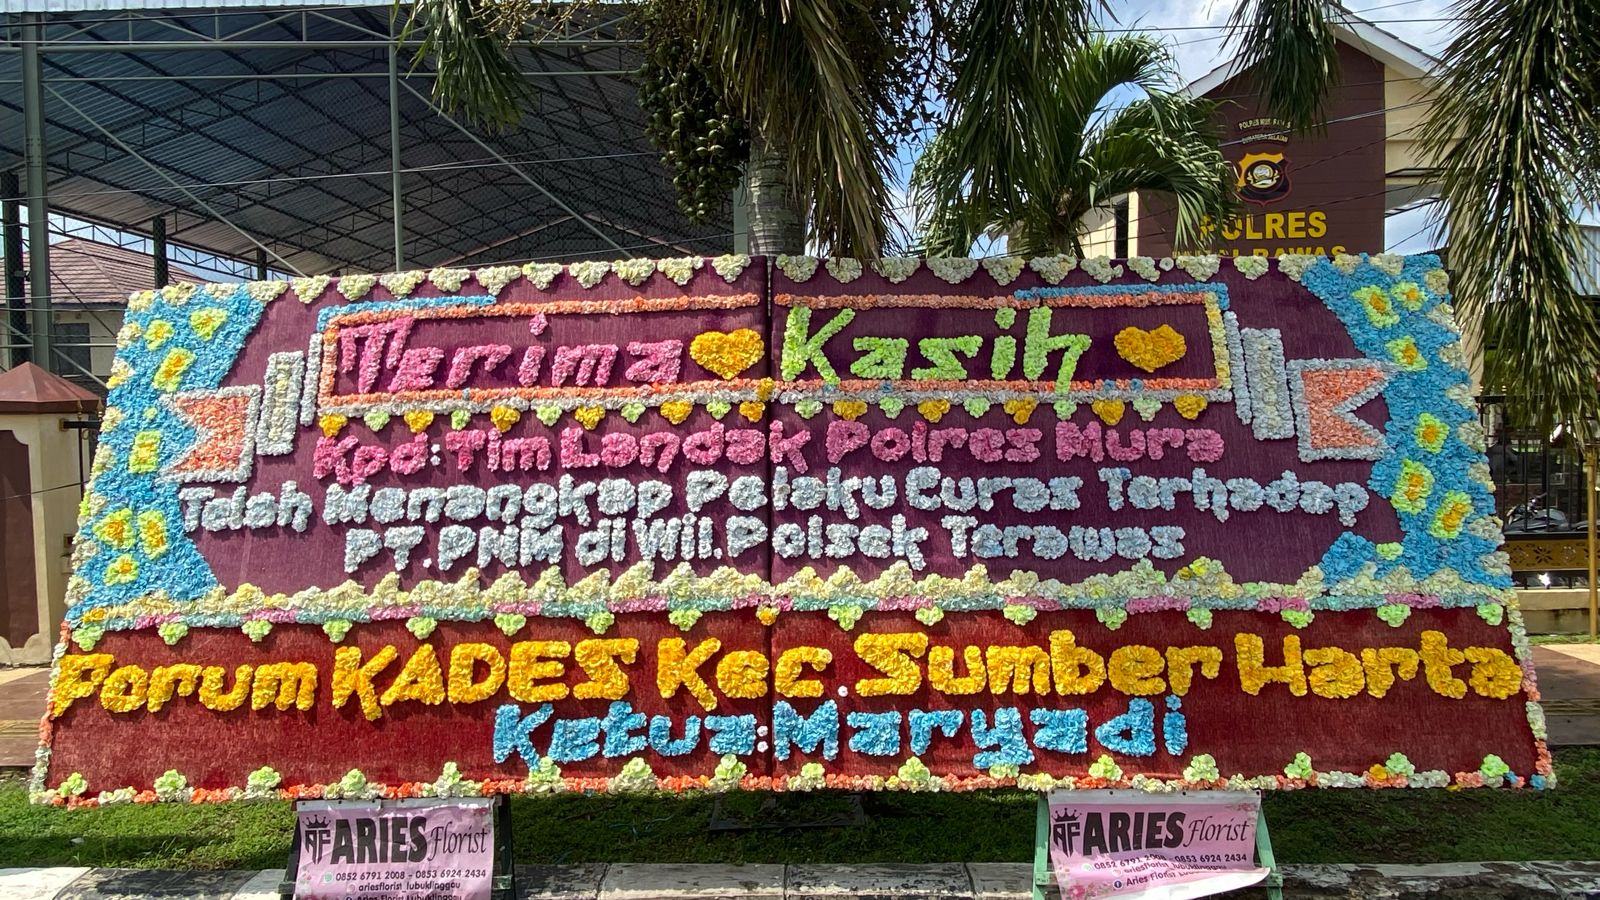 POLRES MUSI RAWAS
SUMATERA SELATAN
POLRES
MUSI RAWAS
Terima Kasih
Kpd: Tim Landak Polres Mura
Telah Menangkap Pelaku Curas Terhadap
PT PNM di Wil. Polsek Terawas
Forum KADES Kec. Sumber Harta
Ketua: Maryadi
AF ARIES Florist
0852 6791 2008 - 0853 6924 2434
ariesflorist_lubuklinggau
Aries Florist Lubuklinggau
AF ARIES Florist
0852 6791 2008 - 0853 6924 2434
ariesflorist_lubuklinggau
Aries Florist